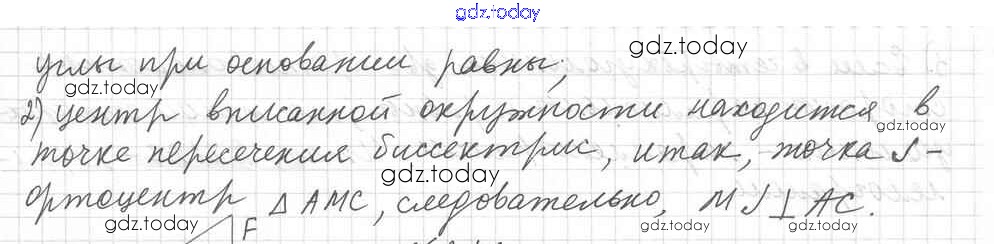 gdz.today
углы при основании равны; gdz.today
gdz.today
2) центр вписанной окружности находится в
gdz.today
точке пересечения биссектрис, итак, точка J -
gdz.today
ортоцентр △ AMC, следовательно, MJ ⊥ AC.
F gdz.today gdz.today gdz.today